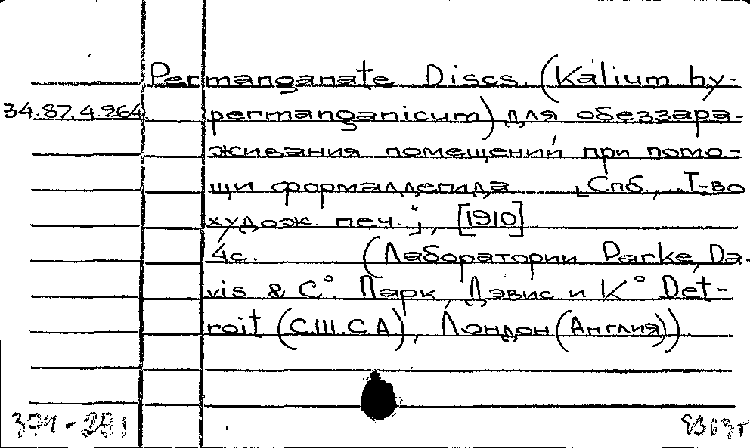 Permanganate Discs (Kalium hy-
34.87.4.964 permanganicum) для обеззара-
живания помещений при помо-
щи формалдегида Спб., Т-во
худож. печ.", [1910]
4с. (Лаборатории Parke, Da-
vis & C°. Парк, Дэвис и К° Det-
roit (С.Ш.С.А), Лондон (Англия)).